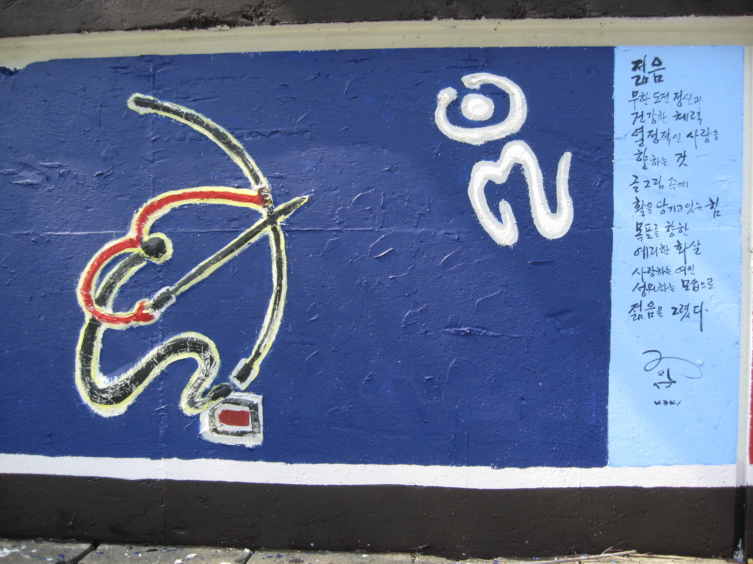 젊음
무한 도전 정신과
건강한 체력
열정적인 사랑을
향하는 것
글그림 속에
활을 당기고 있는 힘
목표를 향한
예리한 화살
사랑하는 여인
성원하는 모습으로
젊음을 그렸다.